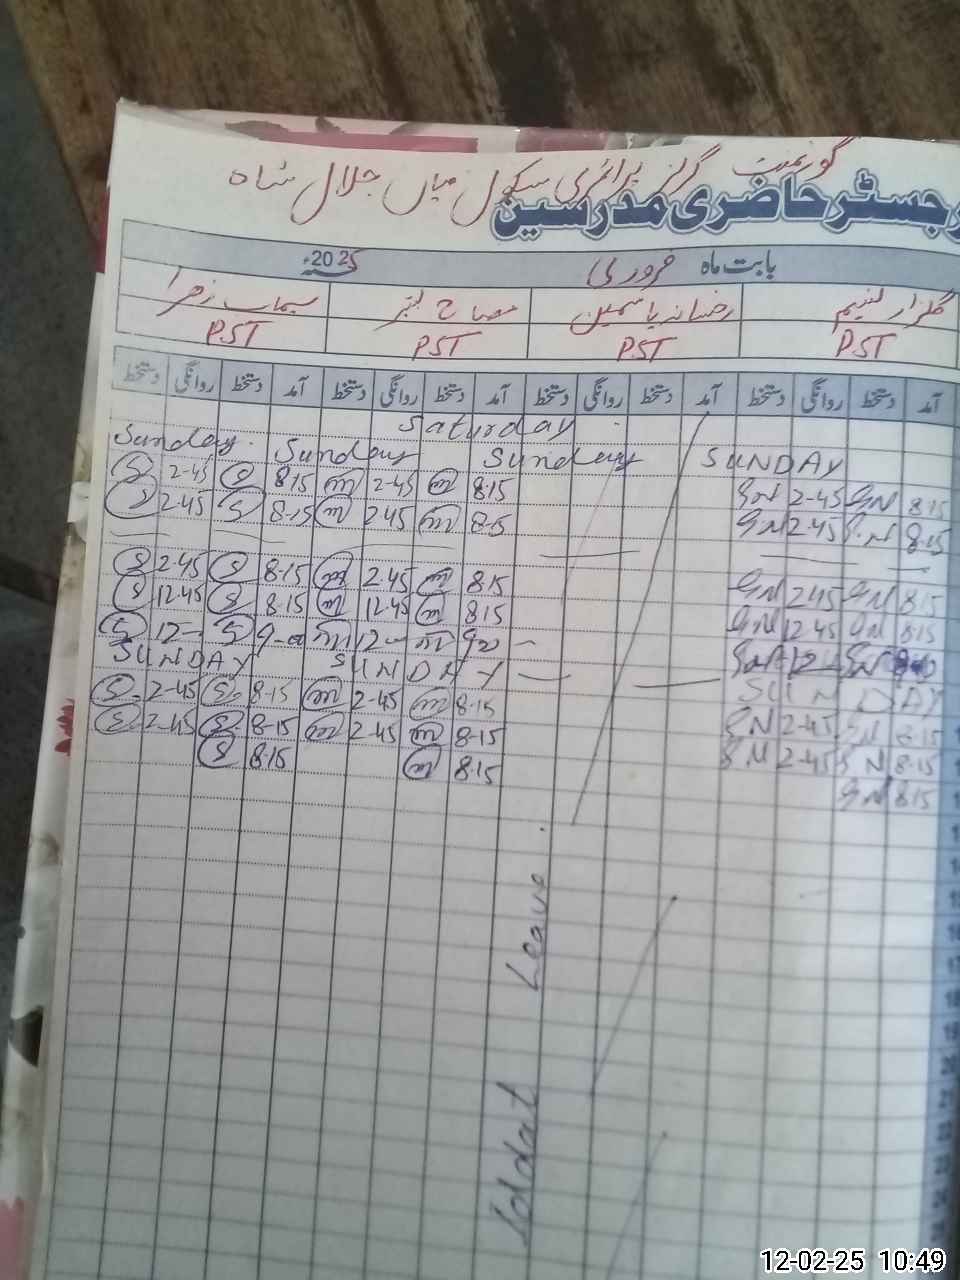 گورنمنٹ گرلز پرائمری سکول میاں جلال شاہ
رجسٹر حاضری مدرسین
بابت ماہ فروری 2025ء
گلزار نسیم رخسانہ یاسمین مصباح سیماب زھرا
PST PST PST PST
آمد دستخط روانگی دستخط آمد دستخط روانگی دستخط آمد دستخط روانگی دستخط آمد دستخط روانگی دستخط
Saturday
Sunday Sunday Sunday SUNDAY
S 2-45 S 8.15 m 2-45 m 8.15 GN 2-45 GN 8.15
S 2-45 S 8-15 m 2.45 m 8.15 GN 2.45 G.N 8.15
S 2-45 S 8-15 m 2.45 m 8.15 GN 2.45 GN 8.15
S 12.45 S 8.15 m 12.45 m 8.15 GN 12.45 GN 8.15
S 12- S 9- m 12- m 9 GN 12- GN
SUNDAY SUNDAY SUNDAY
S 2-45 S 8-15 m 2-45 m 8-15 GN 2-45 GN 8.15
S 2-45 S 8-15 m 2-45 m 8-15 GN 2-45 GN 8-15
S 8.15 m 8.15 GN 8.15
Iddat Leave
12-02-25 10:49